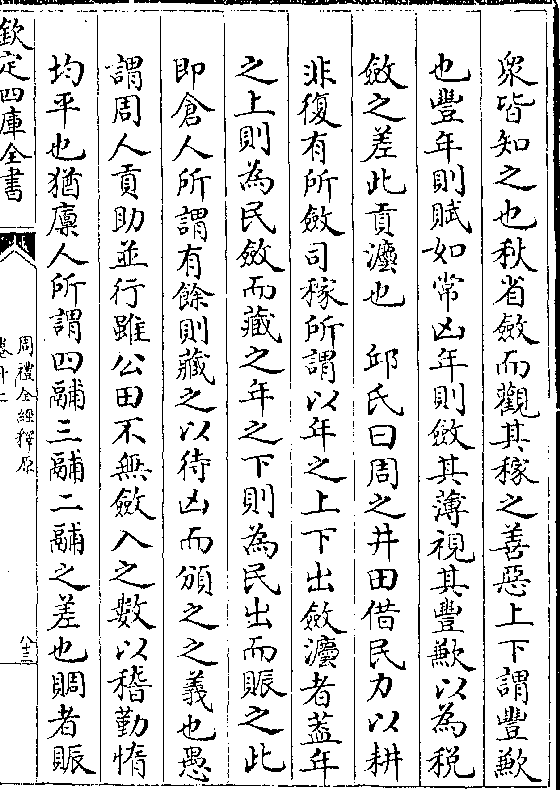 衆皆知之也秋省斂而觀其稼之善惡上下謂豐歉
也豐年則賦如常凶年則斂其薄視其豐歉以為税
斂之差此貢灋也　邱氏曰周之井田借民力以耕
非復有所斂司稼所謂以年之上下出斂灋者葢年
之上則為民斂而藏之年之下則為民出而賑之此
即倉人所謂有餘則藏之以待凶而頒之之義也愚
謂周人貢助並行雖公田不無斂入之數以稽勤惰
均平也猶廩人所謂四鬴三鬴二鬴之差也賙者賑
欽定四庫全書
周禮全經釋原
卷十二